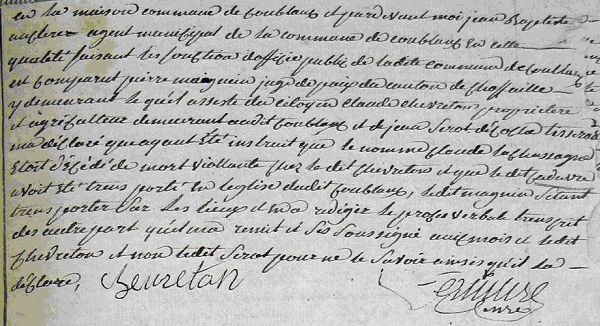 en la maison commune de Coublanc et pardevant moi jean Baptiste
agent municipal de la commune de coublanc en cette
qualité faisant les fonction dofficié public de ladite commune de Coublanc
est comparut pierre magnien juge de paix du canton de Choffaille
y demeurant lequel assesté du citoyen claude chevreton propriétere
et agriculteur demeurant audit Coublanc et de jean Serot décolla tisserand
ma déclaré que ayant Eté instruit que le nommé claude lachassagne
Etoit décédé de mort viollante chez ledit chevreton et que ledit cadavre
avoit Eté trens porté En leglise dudit Coublanc, ledit magnien Setant
trens porter Sur les lieux et ma rediger le proses verbal trenscrit
des autre part quil ma remit et Sés Soussigné avec mois et ledit
chevreton et non ledit Serot pour ne le Savoir ainsis quil la
déclaré,
cheuretan